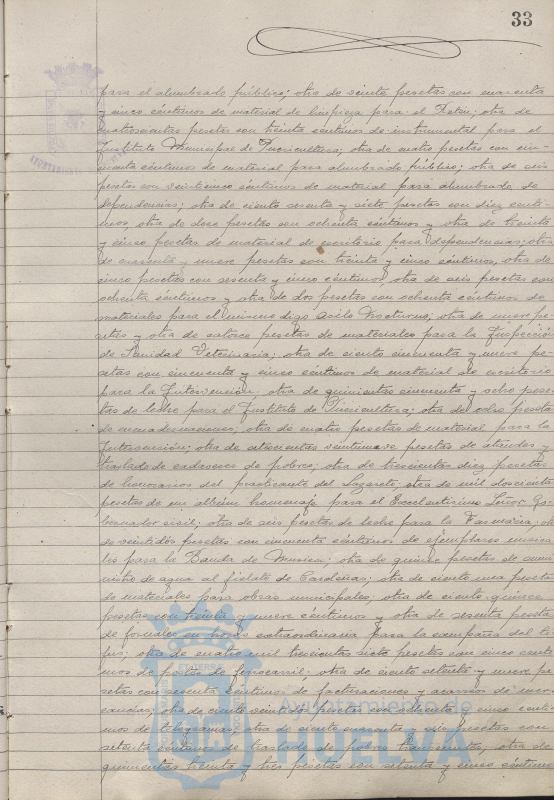 33
para el alumbrado público; otra de veinte pesetas con cuarenta
y cinco céntimos de material de limpieza para el Asilo; otra de
cuatrocientas pesetas con treinta céntimos de instrumental para el
Instituto Municipal de Puericultura; otra de cuatro pesetas con cin-
cuenta céntimos de material para alumbrado público; otra de seis
pesetas con veinticinco céntimos de material para alumbrado de
dependencias; otra de ciento sesenta y siete pesetas con diez cénti-
mos, otra de doce pesetas con ochenta céntimos y otra de treinta
y cinco pesetas de material de escritorio para dependencias; otra
de cuarenta y nueve pesetas con treinta y cinco céntimos, otra de
cinco pesetas con sesenta y cinco céntimos, otra de seis pesetas con
ochenta céntimos y otra de dos pesetas con ochenta céntimos de
materiales para el mismo digo Asilo Nocturno; otra de nueve pe-
setas y otra de catorce pesetas de materiales para la Inspección
de Sanidad Veterinaria; otra de ciento cincuenta y nueve pe-
setas con cincuenta y cinco céntimos de material de escritorio
para la Intervención; otra de quinientas cincuenta y ocho pese-
tas de leche para el Instituto de Puericultura; otra de ocho pesetas
de encuadernaciones; otra de cuatro pesetas de material para la
Intervención; otra de ochocientas veintinueve pesetas de ataudes y
traslado de cadáveres de pobres; otra de trescientas diez pesetas
de honorarios del practicante del Lazareto; otra de mil doscientas
pesetas de un album homenaje para el Excelentísimo Señor Go-
bernador civil; otra de seis pesetas de leche para la Farmacia; otra
de veintidos pesetas con cincuenta céntimos de ejemplares musica-
les para la Banda de Musica; otra de quince pesetas de sumi-
nistro de agua al fielato de Cardenas; otra de ciento una pesetas
de materiales para obras municipales; otra de ciento quince
pesetas con treinta y nueve céntimos y otra de sesenta pesetas
de jornales en horas extraordinarias para la campaña del ti-
fus; otra de cuatro mil trescientas siete pesetas con cinco cénti-
mos de portes de ferrocarril; otra de ciento setenta y nueve pe-
setas con sesenta céntimos de facturaciones y acarreos de mer-
cancias; otra de ciento veintidos pesetas con ochenta y cinco cénti-
mos de telegramas; otra de ciento cuarenta y seis pesetas con
setenta céntimos de traslado de pobres transeuntes; otra de
quinientas treinta y tres pesetas con setenta y cinco céntimos
Ayuntamiento de
HUELVA